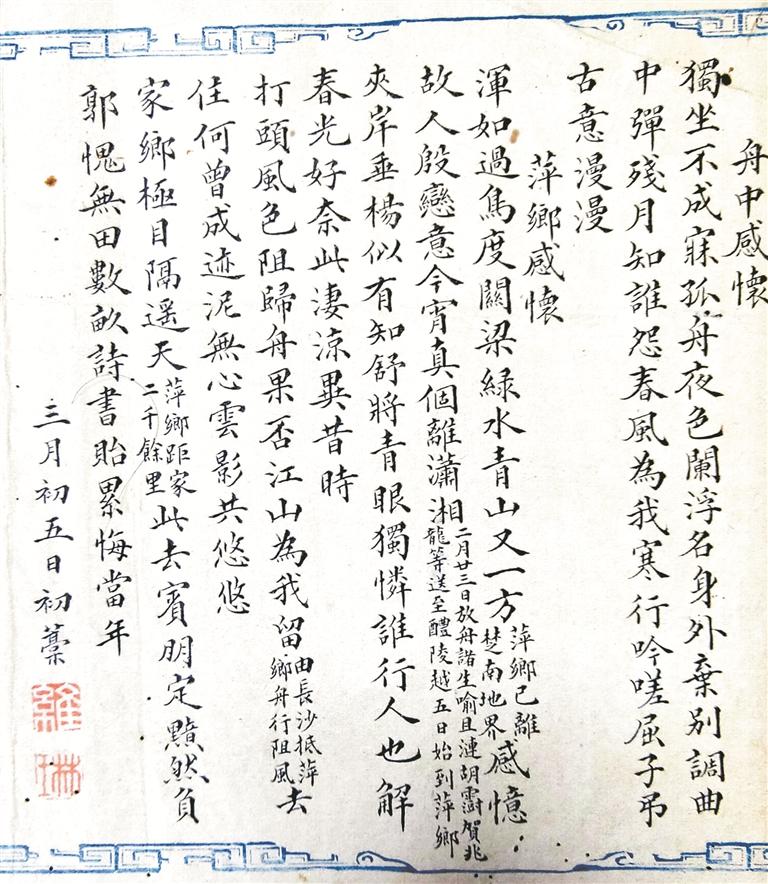 舟中感懷
獨坐不成寐孤舟夜色闌浮名身外棄別調曲
中彈殘月知誰怨春風為我寒行吟嗟屈子弔
古意漫漫
萍鄉感懷
渾如過鳥度關梁綠水青山又一方萍鄉已離楚南地界感憶
故人殷戀意今宵真個離瀟湘二月廿三日放舟諸生喻且漣胡霨賀兆龍等送至醴陵越五日始到萍鄉
夾岸垂楊似有知舒將青眼獨憐誰行人也解
春光好奈此淒涼異昔時
打頭風色阻歸舟果否江山為我留由長沙抵萍鄉舟行阻風去
住何曾成迹泥無心雲影共悠悠
家鄉極目隔遥天萍鄉距家二千餘里此去賓朋定黯然負
郭愧無田數畝詩書貽累悔當年
三月初五日初藁